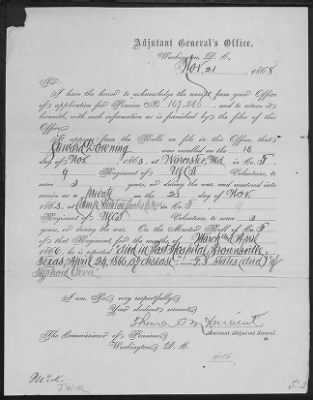 Adjutant General's Office,
Washington, D. C.,
Nov. 21 1868.
Sir:
I have the honor to acknowledge the receipt from your Office
of application for Pension No. 167,286, and to return it
herewith, with such information as is furnished by the files of this
Office.
It appears from the Rolls on file in this Office, that
Edward Downing was enrolled on the 18
day of Nov 1863, at Worcester, Md in Co. F
9 Regiment of USCT Volunteers, to
serve 3 years, or during the war, and mustered into
service as a private on the 28 day of Nov.,
1863, at Camp Stanton in Co. F
Regiment of USCT Volunteers, to serve 3
years, or during the war. On the Muster Roll of Co. F
of that Regiment, for the months of March and April
1866, he is reported "died in Post Hospital, Brownsville,
Texas, April 24, 1866, of disease." F. S. states (died) of
Typhoid Fever.
I am, Sir, very respectfully,
Your obedient servant,
Thomas M Vincent
Assistant Adjutant General.
The Commissioner of Pensions,
Washington, D. C.